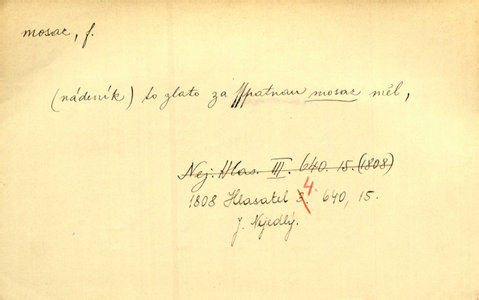 mosac, f.
(nádeník) to zlato za sspatnau mosac měl,
Nej. Hlas. III. 640. 15. (1808)
1808 Hlasatel 3. 4. 640, 15.
J. Nejedlý.